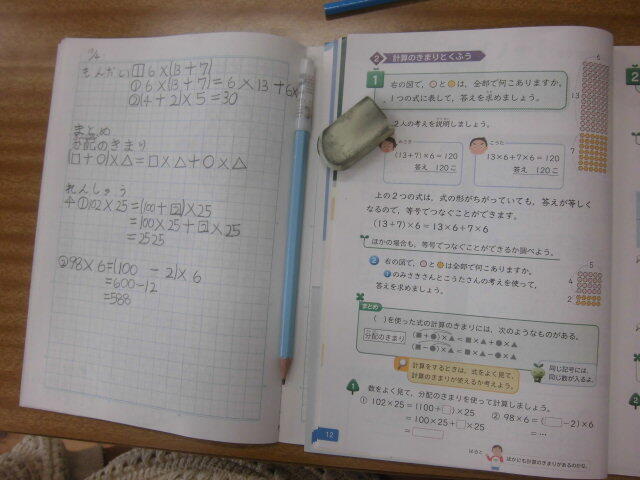 もんだい 1 6×(13+7)
① 6×(13+7)=6×13+6×
② (4+2)×5=30
まとめ
分配のきまり
(□+○)×△=□×△+○×△
れんしゅう
① 102×25=(100+2)×25
=100×25+2×25
=2525
② 98×6=(100-2)×6
=600-12
=588
2 計算のきまりとくふう
1 右の図で、○と●は、全部で何こありますか。
1つの式に表して、答えを求めましょう。
2人の考えを説明しましょう。
みさき
(13+7)×6=120
答え 120こ
こうた
13×6+7×6=120
答え 120こ
上の2つの式は、式の形がちがっていても、答えが等しく
なるので、等号でつなぐことができます。
(13+7)×6=13×6+7×6
ほかの場合も、等号でつなぐことができるか調べよう。
2 右の図で、○と●は全部で何こありますか。
1のみさきさんとこうたさんの考えを使って、
答えを求めましょう。
まとめ
( )を使った式の計算のきまりには、次のようなものがある。
分配のきまり (■+●)×▲=■×▲+●×▲
(■-●)×▲=■×▲-●×▲
計算をするときは、式をよく見て、
計算のきまりが使えるか考えよう。
同じ記号には、
同じ数が入るよ。
1 数をよく見て、分配のきまりを使って計算しましょう。
① 102×25=(100+□)×25
=100×25+□×25
=□
② 98×6=(□-2)×6
=…
12
ほかにも計算のきまりがあるのかな。
6
13
7
5
4
2